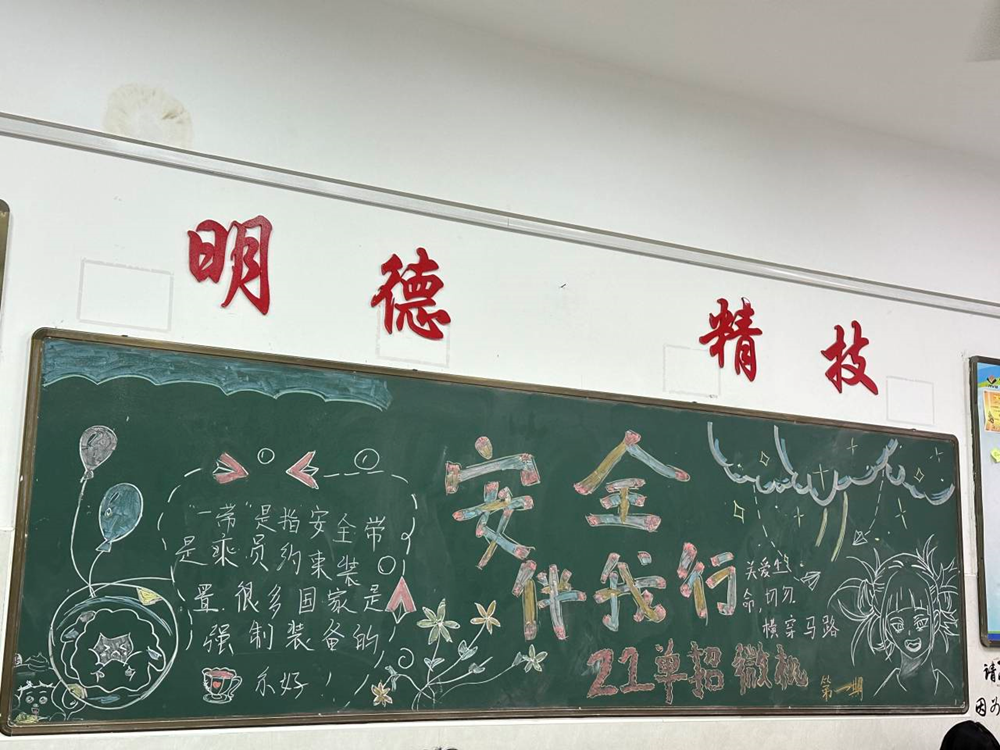 明德 精技
安全
伴我行
21单招微机
第一期
"一带"是指安全带
是乘员约束装
置.很多国家是
强制装备的
关爱生
命,切勿
横穿马路
请
因为